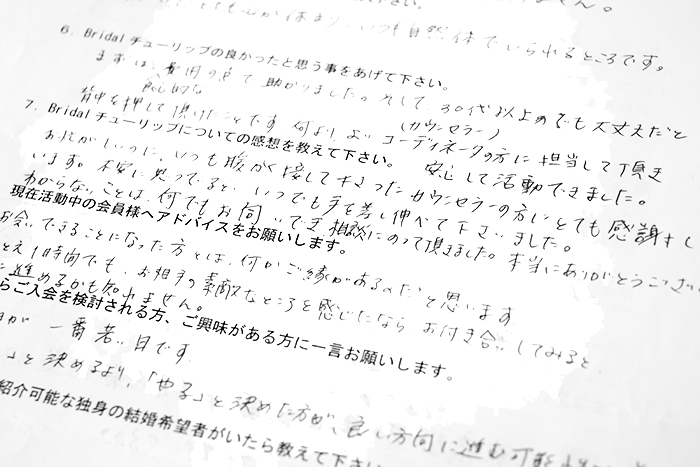 とても心が休まり、いつも自然体でいられるところです。
6. Bridal チューリップの良かったと思う事をあげて下さい。
まずは、費用の点で助かりました。そして、30代以上のでも大丈夫だと
背中を押して頂けたことです 何より、よいコーディネータの方に担当して頂き
(カウンセラー)
7. Bridal チューリップについての感想を教えて下さい。 安心して活動できました。
お忙がしいのに、いつも暖かく接して下さったカウンセラーの方にとても感謝して
います。不安に思ってると、いつでも手を差し伸べて下さいました。
わからないことは、何でもお伺いでき、相談にのって頂きました。本当にありがとうござい
現在活動中の会員様へアドバイスをお願いします。
お会いできることになった方とは、何かご縁があるのだと思います
とえ1時間でも、お相手の素敵なところを感じたなら お付き合いしてみると、
に進めるかも知れません。
らご入会を検討される方、ご興味がある方に一言お願いします。
が 一番若い日です
」と決めるより、「やる」と決めた方が、良い方向に進む可能
紹介可能な独身の結婚希望者がいたら教えて下さい